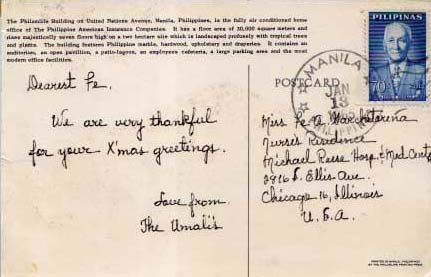 The Philamlife Building on United Nations Avenue, Manila, Philippines, is the fully air conditioned home
office of The Philippine American Insurance Companies. It has a floor area of 30,000 square meters and
rises majestically seven floors high on a two hectare site which is landscaped profusely with tropical trees
and plants. The building features Philippine marble, hardwood, upholstery and draperies. It contains an
auditorium, an open pavilion, a patio-lagoon, an employees cafeteria, a large parking area and the most
modern office facilities.
Dearest Fe,
We are very thankful
for your X'mas greetings.
Love from
The Umali's
PILIPINAS
70s
MANILA
JAN
13
PHILIPPINES
POSTCARD
Miss Fe A.
Nurses Residence
Michael Reese Hosp. & Med Cent
2816 S. Ellis Ave.
Chicago 16, Illinois
U.S.A.
PRINTED IN MANILA, PHILIPPINES